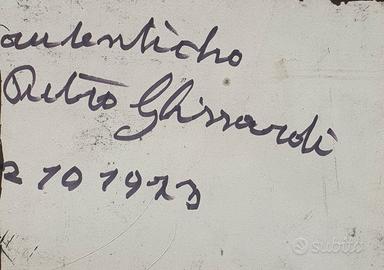 autenticho
Pietro Ghizzardi
2 10 1973
subito